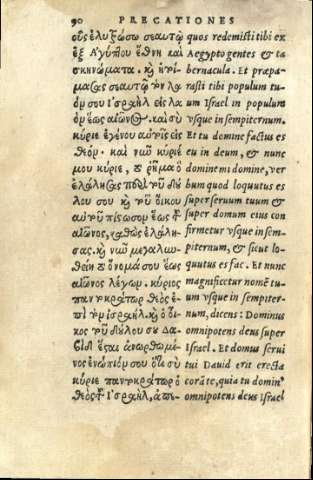 90 PRECATIONES
οὓς ἐλυτρώσω σεαυτῷ
ἐξ Αἰγύπτου ἔθνη καὶ
σκηνώματα. καὶ ἡτοί-
μασας σεαυτῷ τὸν λα-
όν σου ἰσραὴλ εἰς λα
ὸν ἕως αἰῶνος. καὶ σὺ
κύριε ἐγένου αὐτοῖς εἰς
θεόν. καὶ νῦν κύριέ
μου κύριε, τὸ ῥῆμα ὃ
ἐλάλησας περὶ τοῦ δού
λου σου καὶ τοῦ οἴκου
αὐτοῦ πίστωσον ἕως τοῦ
αἰῶνος, καθὼς ἐλάλη-
σας. καὶ νῦν μεγαλυν-
θείη τὸ ὄνομά σου ἕως
αἰῶνος λέγων. κύριος
παντοκράτωρ θεὸς ἐ-
πὶ τὸν ἰσραήλ. καὶ ὁ οἶ-
κος τοῦ δούλου σου Δα-
βὶδ ἔσται ἀνωρθωμέ-
νος ἐνώπιόν σου ὅτι σὺ
κύριε παντοκράτορ ὁ
θεὸς τοῦ ἰσραὴλ, ἀπε-
quos redemisti tibi ex
Aegypto gentes & ta
bernacula. Et præpa-
rasti tibi populum tu-
um Israel in populum
vsque in sempiternum.
Et tu domine factus es
eis in deum, & nunc
domine mi domine, ver
bum quod loquutus es
super seruum tuum &
super domum eius con
firmetur vsque in sem-
piternum, & sicut lo-
quutus es fac. Et nunc
magnificetur nomē tu-
um vsque in sempiter-
num, dicens: Dominus
omnipotens deus super
Israel. Et domus serui
tui Dauid erit erecta
corā te, quia tu domin'
omnipotens deus Israel